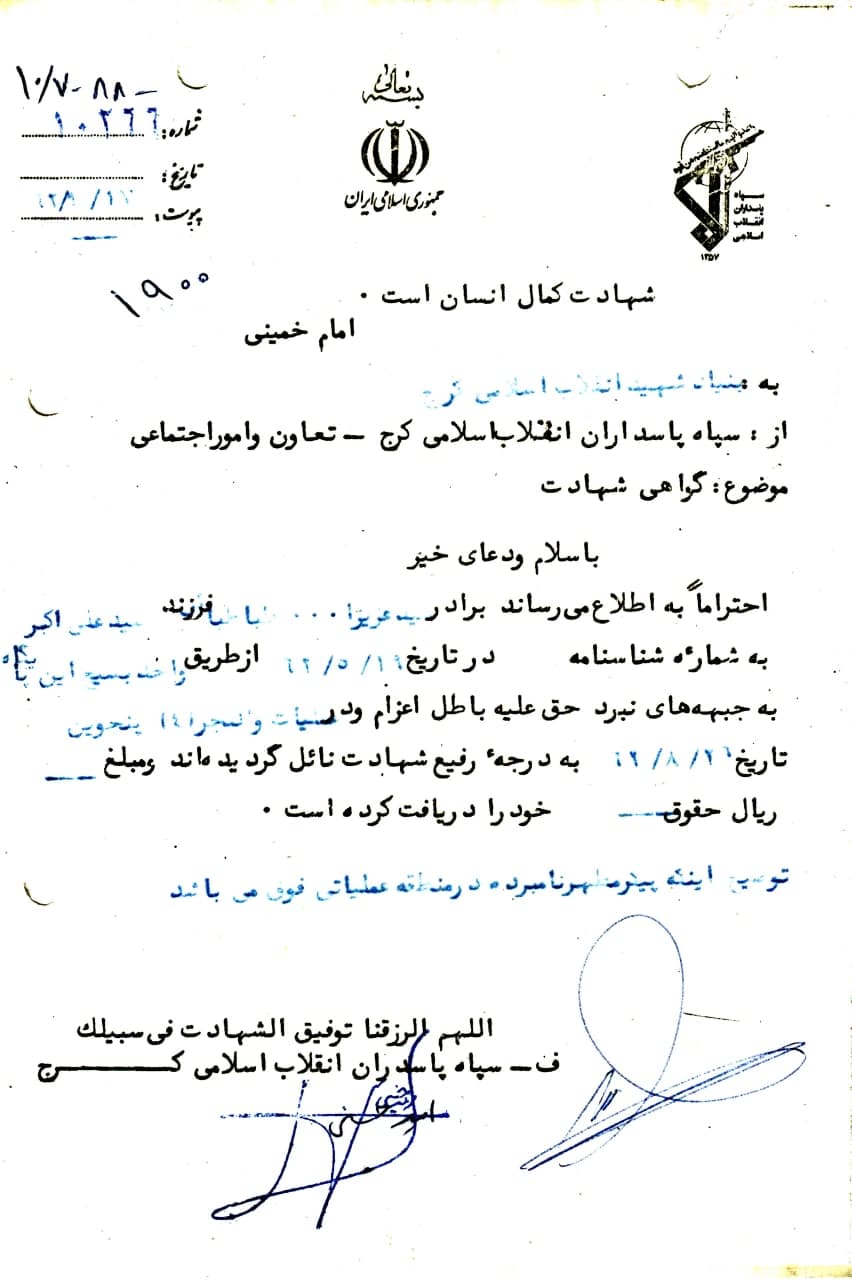 بسمه تعالی
جمهوری اسلامی ایران
سپاه
پاسداران
انقلاب
اسلامی
۱۳۵۷
۱۰/۷-۸۸-
شماره: ۱۰۲۶۶
تاریخ:
پیوست:
۱۹۰۰
شهادت کمال انسان است ۰
امام خمینی
به : بنیاد شهید انقلاب اسلامی کرج
از : سپاه پاسداران انقلاب‌اسلامی کرج – تعاون وامور‌اجتماعی
موضوع : گواهی شهادت
باسلام ودعای خیر
احتراماً به اطلاع می‌رساند برادر سیدعزیزا۰۰۰ طباطبا فرزند سیدعلی اکبر
به شماره شناسنامه در تاریخ ۶۲/۵/۱۶ ازطریق واحد بسیج این پایگاه
به جبهه‌های نبرد حق علیه باطل اعزام ودر عملیات والفجر(۴) پنجوین
تاریخ ۶۲/۸/۲۶ به درجهٔ رفیع شهادت نائل گردیده‌اند ومبلغ ــ
ریال حقوق ــ خود را دریافت کرده است ۰
توضیح اینکه پیکرمطهرنامبرده درمنطقه عملیاتی فوق می باشد
اللهم الرزقنا توفیق الشهادت فی سبیلك
ف – سپاه پاسدران انقلاب اسلامی کــــرج